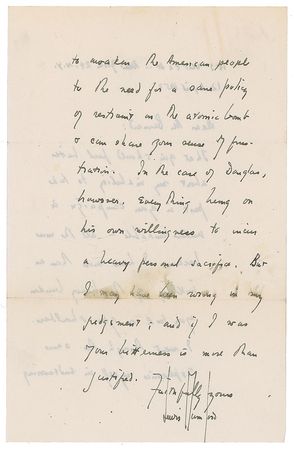 to awaken the American people
to the need for a sane policy
of restraint on the atomic bomb
I can share your sense of frus-
tration. In the case of Douglas,
however, everything hung on
his own willingness to incur
a heavy personal sacrifice. But
I may have been wrong in my
judgement; and if I was
your bitterness is more than
justified.
Faithfully yours
Lewis Mumford